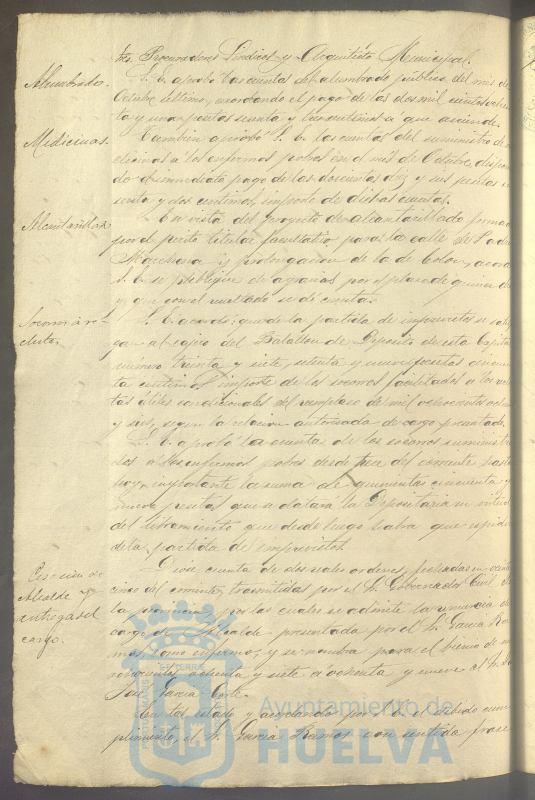 tres. Procuradores Sindicos y Arquitecto Municipal.
Alumbrado.
S. E. aprobó las cuentas del alumbrado público del mes de
Octubre último, acordando el pago de las dos mil
ta y una pesetas y céntimos a que asciende.
Medicinas.
Tambien aprobó S. E. las cuentas del suministro de me
dicinas a los enfermos pobres en el mes de Octubre,
do el inmediato pago de las doscientas diez y seis pesetas
y dos centimos, importe de dichas cuentas.
Alcantarillado
En vista del proyecto de alcantarillado formado
por el perito titular facultativo para la calle de
Marchena y prolongacion de la de Colon, acordó
S. E. se publique por el plazo de quince dias
y que con el resultado se dé cuenta.
Socorro á re-
clutas
S. E. acordó: que de la partida de imprevistos se satis
fagan al cajero del Batallon de Deposito de esta Capital
número treinta y siete, setenta y nueve pesetas
ta centimos importe de los socorros facilitados a los reclu
tas útiles condicionales del reemplazo de mil ochocientos ochenta
y seis, segun la relacion autorizada de cargo presentada.
S. E. aprobó la cuenta de los socorros suministra
dos á los enfermos pobres desde trece del corriente hasta
hoy, importante la suma de quinientas cincuenta y
nueve pesetas que a datará la Depositaria en virtud
del libramiento que desde luego habra que espedir
de la partida de imprevistos.
Cesación de
Alcalde y
entrega del
cargo.
Dióse cuenta de dos reales ordenes, fechadas en
cinco del corriente, trasmitidas por el Sr. Gobernador Civil de
la provincia, por las cuales se admite la renuncia del
cargo de Alcalde presentada por el Sr. Garcia Ra
mos, como enfermo, y se nombra para el bienio de mil
ochocientos ochenta y siete á ochenta y nueve al Sr. Dn
José Garcia
En tal estado y acordado por S. E. el debido cum
plimiento, el Sr. Garcia Ramos con sentida frase
Ayuntamiento de
HUELVA